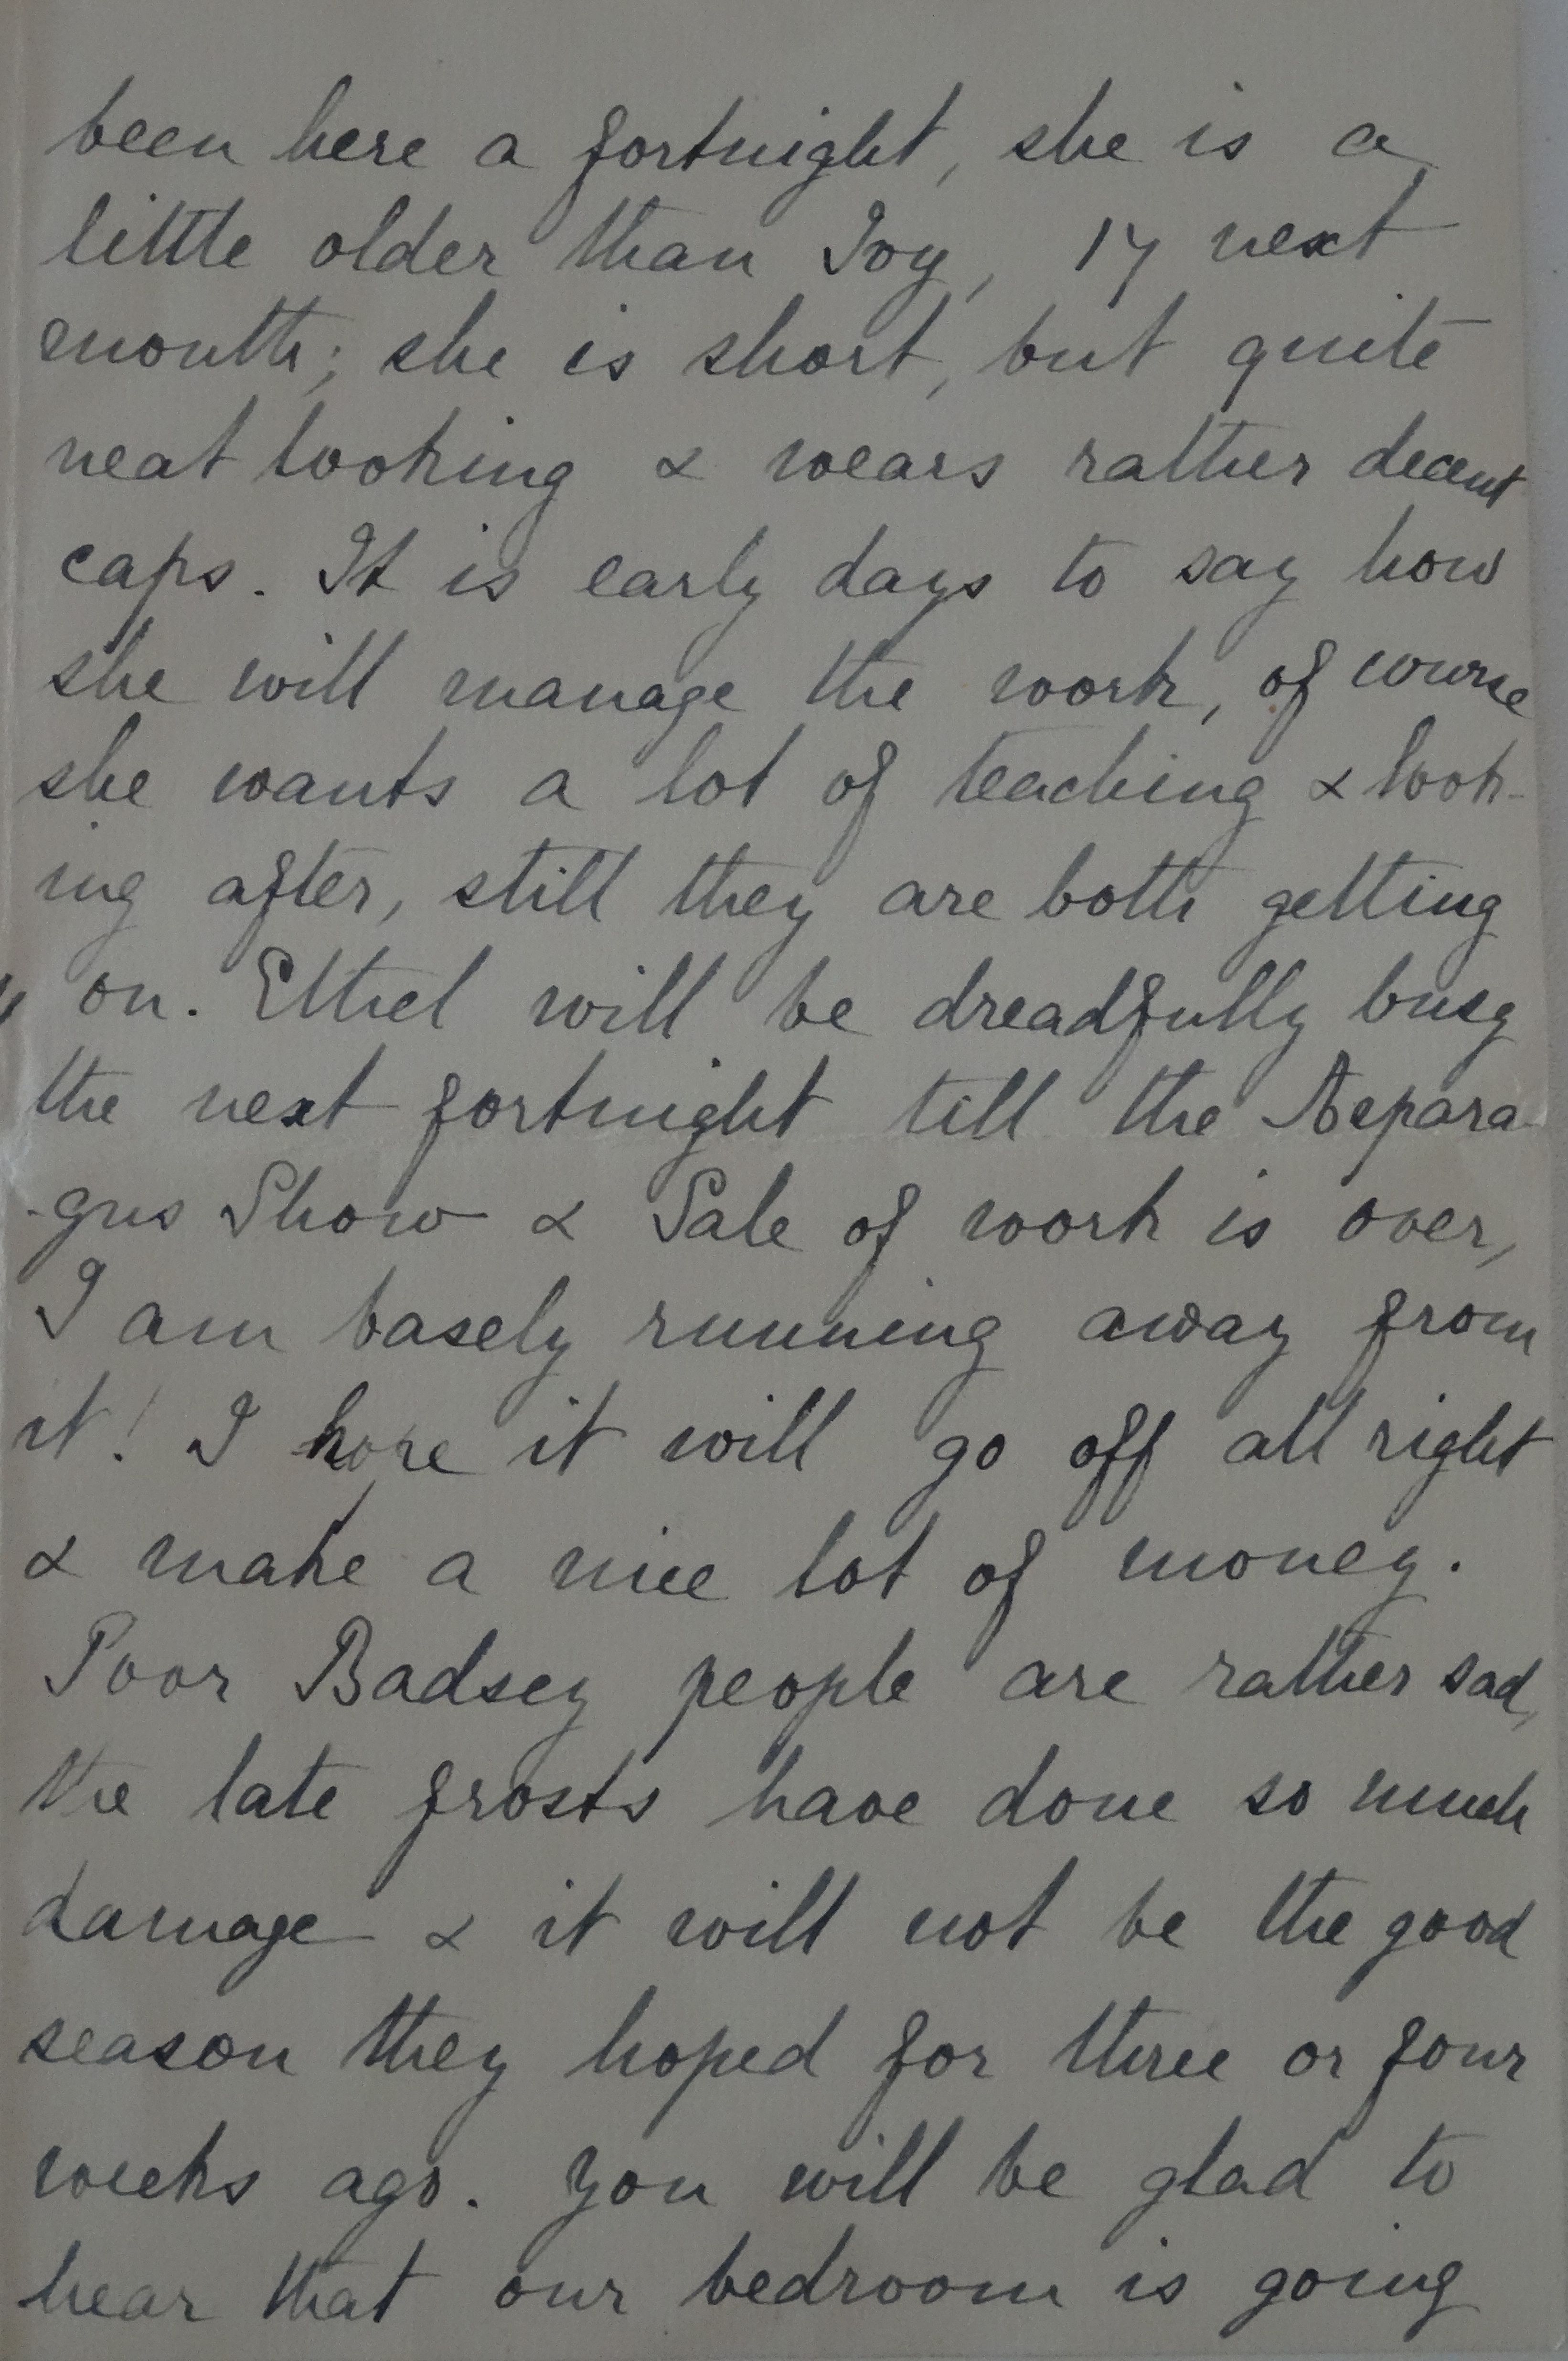 been here a fortnight, she is a
little older than Joy, 17 next
month; she is short, but quite
neat looking & wears rather decent
caps. It is early days to say how
she will manage the work, of course
she wants a lot of teaching & look-
ing after, still they are both getting
on. Ethel will be dreadfully busy
the next fortnight till the Aspara-
-gus Show & Sale of work is over,
I am basely running away from
it! I hope it will go off all right
& make a nice lot of money.
Poor Badsey people are rather sad,
the late frosts have done so much
damage & it will not be the good
season they hoped for three or four
weeks ago. You will be glad to
hear that our bedroom is going